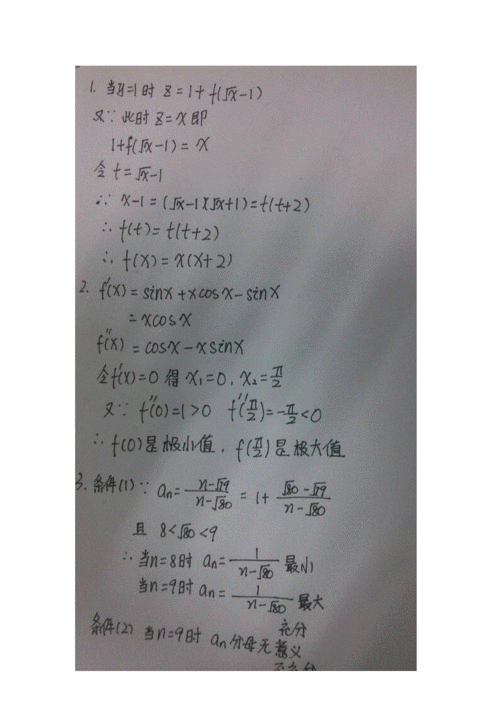 1. 当y=1时 z=1+f(√x-1)
又∵ 此时 z=x 即
1+f(√x-1)=x
令 t=√x-1
∴ x-1=(√x-1)(√x+1)=t(t+2)
∴ f(t)=t(t+2)
∴ f(x)=x(x+2)
2. f'(x)=sinx+xcosx-sinx
=xcosx
f''(x)=cosx-xsinx
令f'(x)=0 得 x₁=0, x₂=π/2
又∵ f''(0)=1>0 f''(π/2)=-π/2<0
∴ f(0)是极小值, f(π/2)是极大值
3. 条件(1)∵ aₙ=(n-√79)/(n-√80)=1+(√80-√79)/(n-√80)
且 8<√80<9
∴ 当n=8时 aₙ=1/(n-√80) 最小
当n=9时 aₙ=1/(n-√80) 最大
充分
条件(2) 当n=9时 aₙ分母无意义